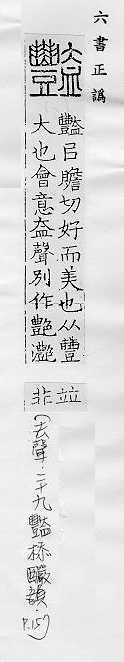 六書正譌
豔㠯贍切好而美也从豐
大也會意盍聲別作艷灩
竝非
(去聲·二十九豔㮇釅韻.
P.157